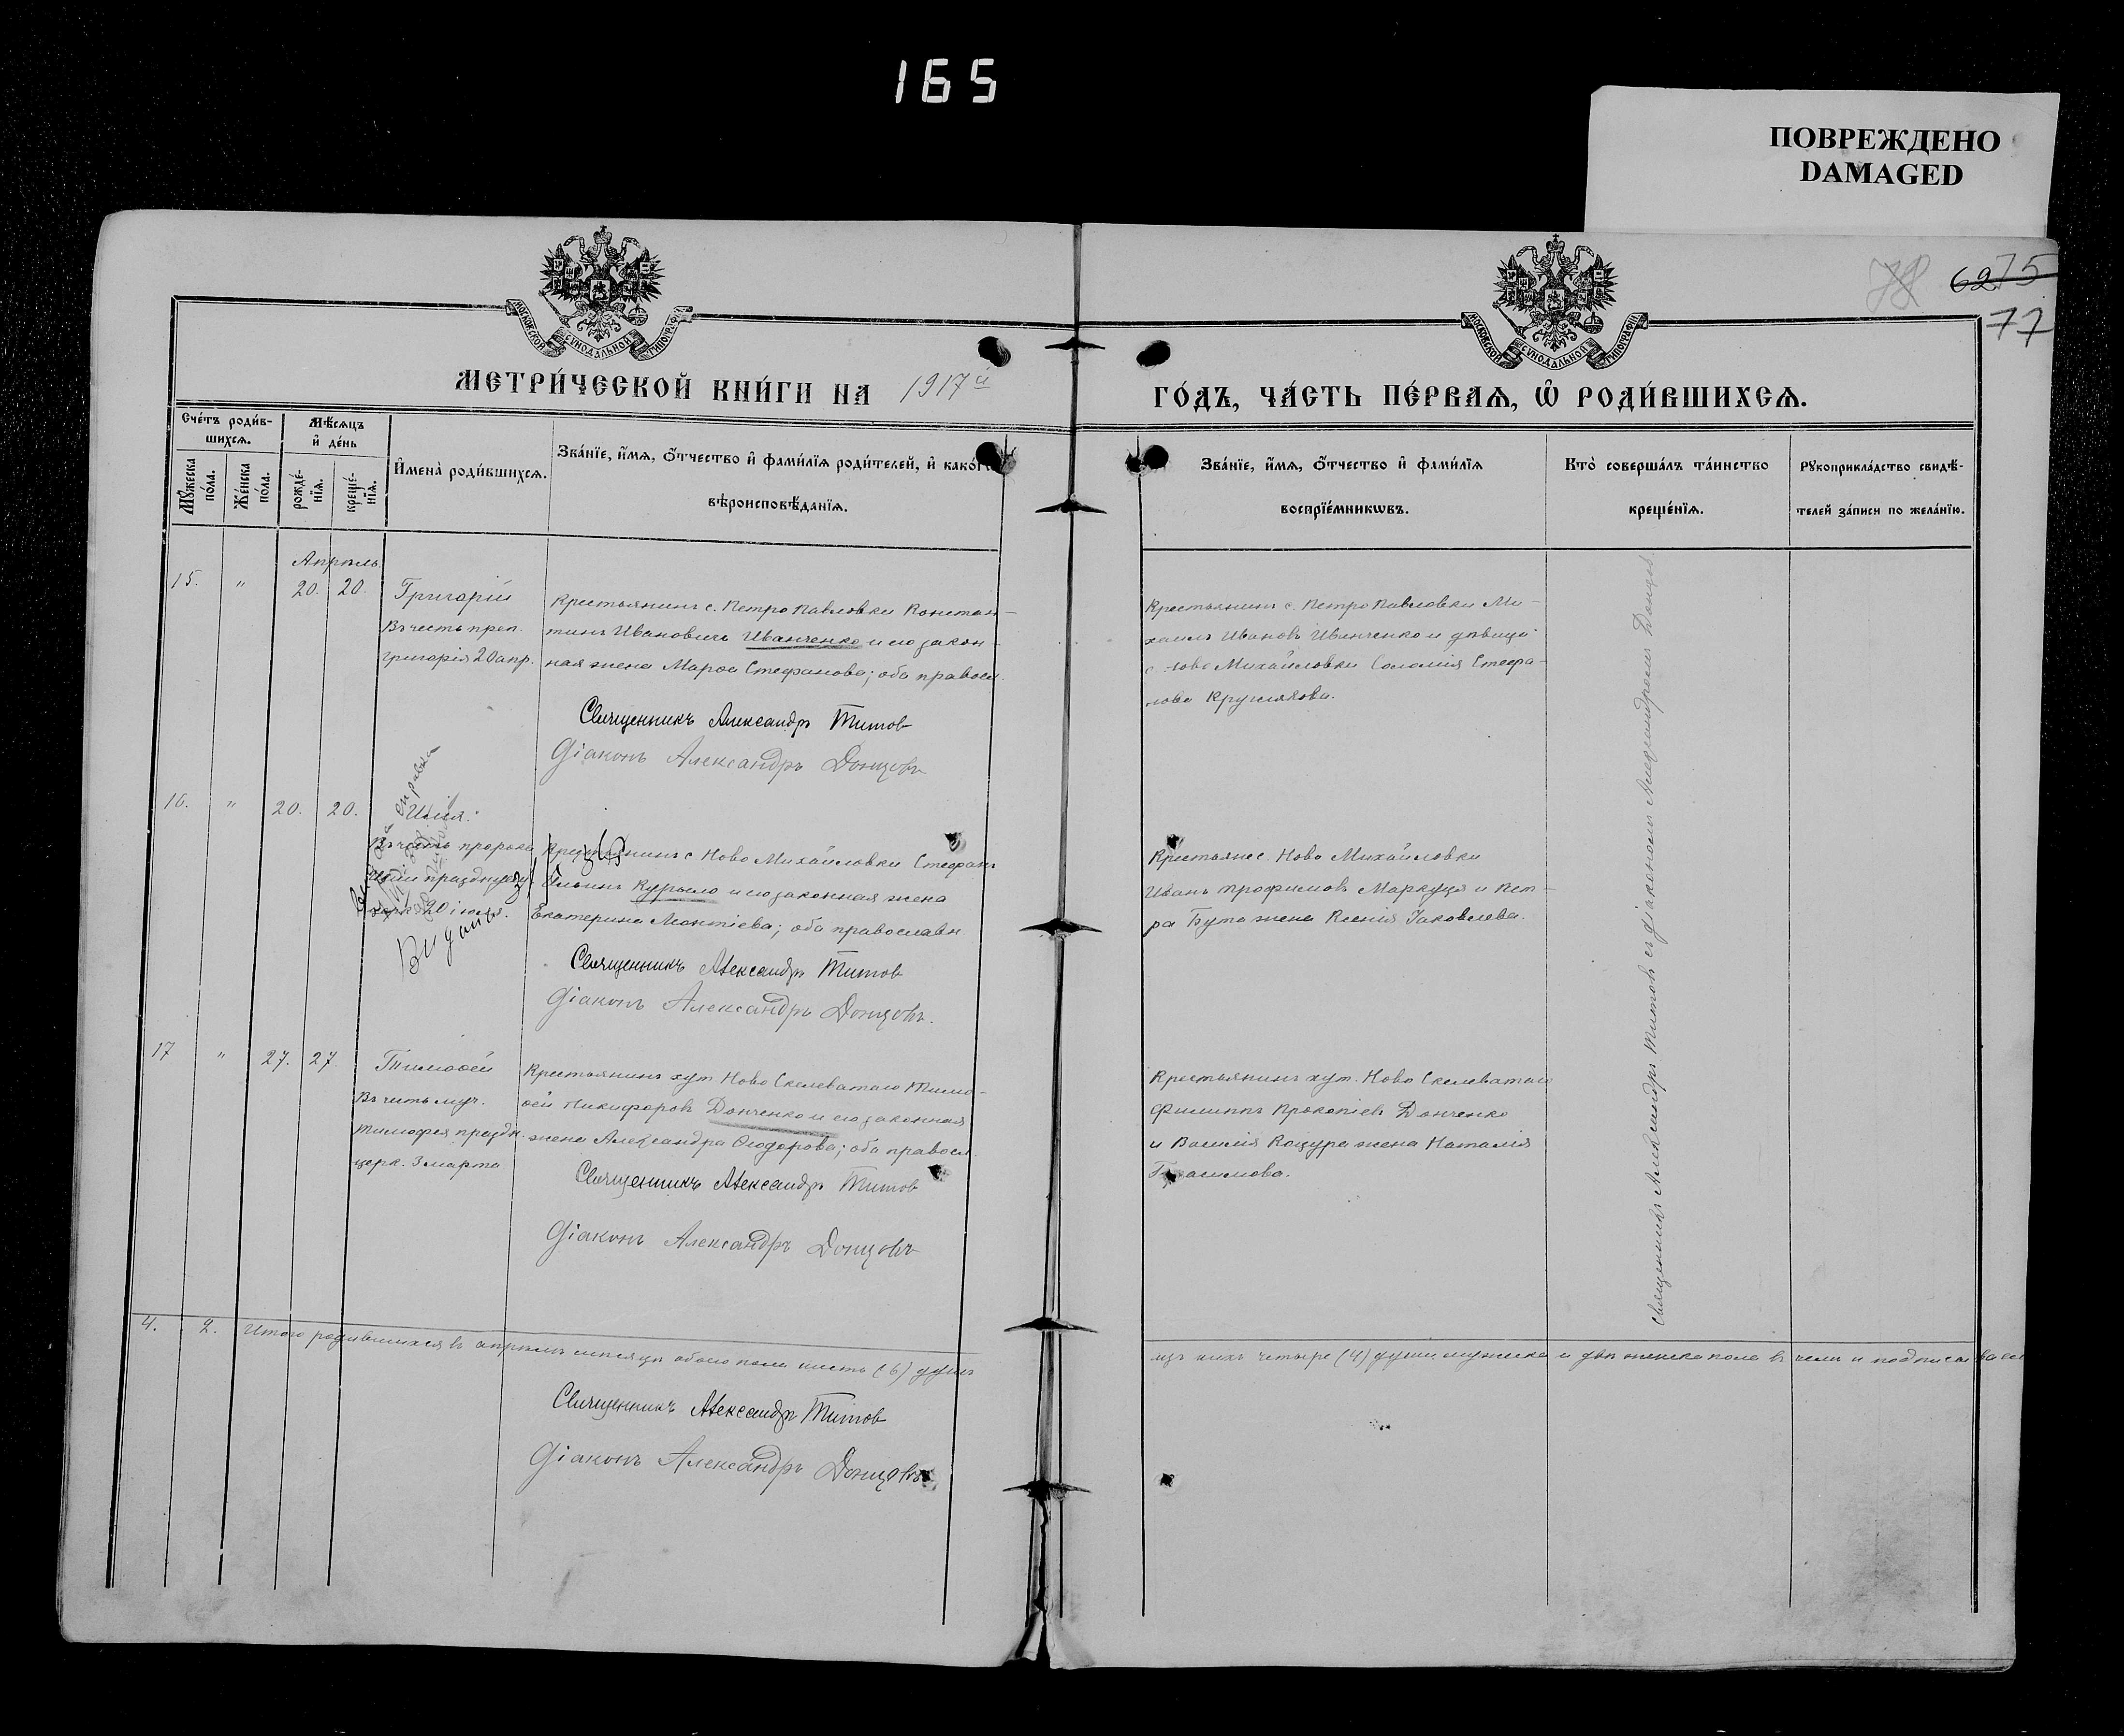 165
ПОВРЕЖДЕНО
DAMAGED
78 62 75
77
МОСКОВСКОЙ СѴНОДАЛЬНОЙ ТИПОГРАФІИ
МОСКОВСКОЙ СѴНОДАЛЬНОЙ ТИПОГРАФІИ
МЕТРИ́ЧЕСКОЙ КНИ́ГИ НА 1917й
ГО́ДЪ, ЧА́СТЬ ПЕ́РВАѦ, Ѡ҆ РОДИ́ВШИХСѦ.
Сче́тъ роди́вшихсѧ.
Мꙋ́жеска по́ла.
Же́нска по́ла.
Мѣ́сѧцъ и҆ де́нь
рожде́нїѧ.
креще́нїѧ.
И҆мена̀ роди́вшихсѧ.
Зва́нїе, и҆́мѧ, ѻ҆́тчество и҆ фами́лїѧ роди́телей, и҆ како́гѡ
вѣроисповѣ́данїѧ.
Зва́нїе, и҆́мѧ, ѻ҆́тчество и҆ фами́лїѧ
воспрїе́мникѡвъ.
Кто̀ соверша́лъ та́инство
креще́нїѧ.
Рꙋкоприкла́дство свидѣ́-
телей за́писи по жела́нїю.
Апрѣль.
15. " 20. 20. Григорій
Въ честь преп.
григорія 20 апр.
Крестьянинъ с. Петро Павловки Констан-
тинъ Ивановичъ Иванченко и его закон-
ная жена Марѳа Стефанова; оба правосл.
Священникъ Александръ Титов
Діаконъ Александръ Донцовъ
Крестьянинъ с. Петро Павловки Ми-
хаилъ Ивановъ Иванченко и дѣвица
с. Ново Михайловки Соломія Стефа-
нова Кружилова.
16. " 20. 20. Илія.
Въ честь пророка
Иліи празднуем.
20 іюля.
Крестьянинъ с Ново Михайловки Стефанъ
Ильинъ Курыло и его законная жена
Екатерина Леонтіева; оба православн
Священникъ Александръ Титов
Діаконъ Александръ Донцовъ.
Крестьяне с. Ново Михайловки
Иванъ Трофимовъ Маркуця и Пет-
ра Бута жена Ксенія Іаковлева.
17 " 27. 27. Тимоѳей
Въ честь муч.
Тимофея праздн.
церк. 3 марта
Крестьянинъ хут Ново Скелеватаго Тимо-
ѳей Никифоровъ Донченко и его законная
жена Александра Ѳеодорова; оба правосл
Священникъ Александръ Титов
Діаконъ Александръ Донцовъ
Крестьянинъ хут. Ново Скелеватаго
Филиппъ Прокопіевъ Донченко
и Василія Коцура жена Наталія
Герасимова.
Священникъ Александръ Титовъ съ діакономъ Александромъ Донцов
4. 2. Итого родившихся въ апрѣлѣ мѣсяцѣ обоего пола шесть (6) душъ
изъ нихъ четыре (4) души мужска и двѣ женска пола въ чемъ и подписалися
Священникъ Александръ Титов
Діаконъ Александръ Донцовъ